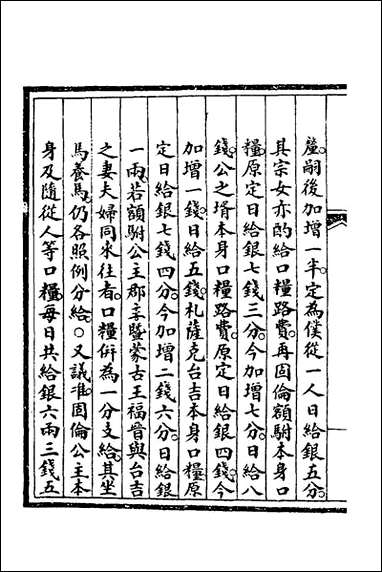 釐。嗣後加增一半。定為僕從一人日給銀五分。
其宗女亦酌給口糧路費。再固倫額駙本身口
糧。原定日給銀七錢三分。今加增七分。日給八
錢。公之壻本身口糧路費。原定日給銀四錢。今
加增一錢。日給五錢。札薩克台吉本身口糧。原
定日給銀七錢四分。今加增二錢六分。日給銀
一兩。若額駙公主郡主暨蒙古王福晉與台吉
之妻夫婦同來往者。口糧併為一分支給。其坐
馬養馬。仍各照例分給。○又議准固倫公主本
身及隨從人等口糧。每日共給銀六兩三錢五